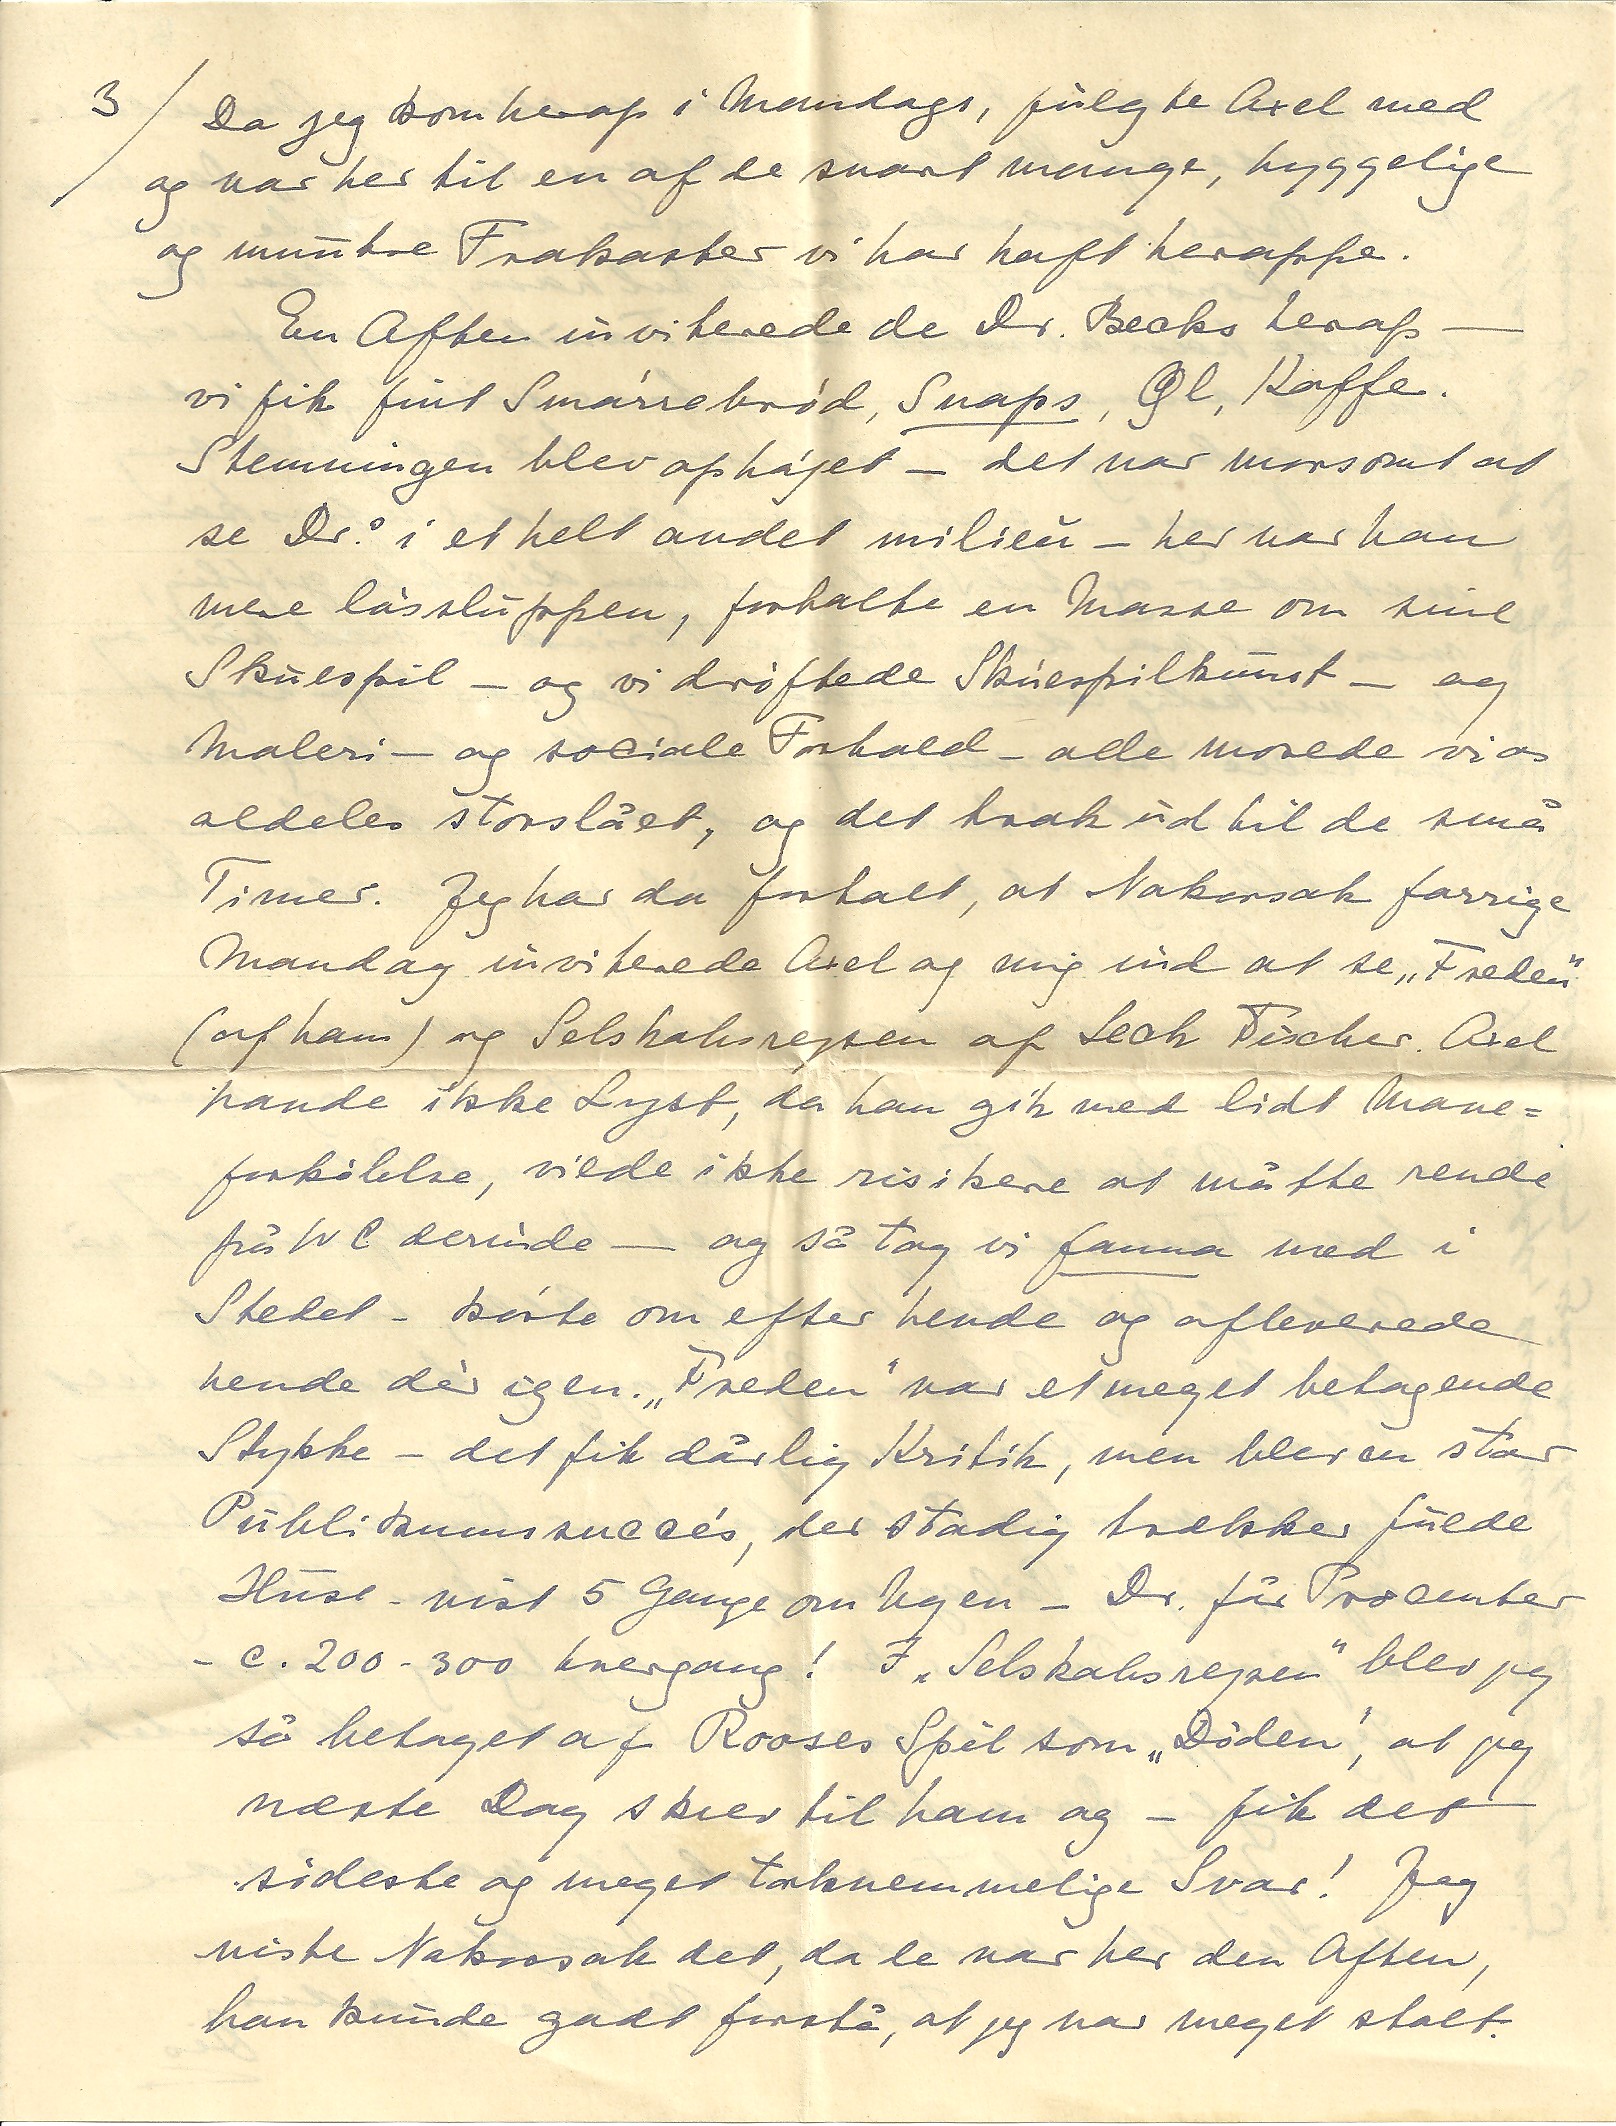 3/ Da jeg kom herop i Mandags, fulgte Axel med
og var her til en af de snart mange, hyggelige
og muntre Frokoster vi har haft heroppe.
En Aften inviterede de Dr. Becks herop —
vi fik fint Smørrebrød, Snaps, Øl, Kaffe.
Stemningen blev ophøjet – det var morsomt at
se Dr.s i et helt andet milieu – her var han
mere løssluppen, fortalte en Masse om sine
Skuespil – og vi drøftede Skuespilkunst – og
Maleri – og sociale Forhold – alle morede vi os
aldeles storslået, og det trak ud til de små
Timer. Jeg har da fortalt, at Nakorsak forrige
Mandag inviterede Axel og mig ind at se „Freden“
(af ham) og Selskabsrejsen af Leck Fischer. Axel
havde ikke Lyst, da han gik med lidt Mave=
forkølelse, vilde ikke risikere at måtte rende
på WC derinde — og så tog vi Janna med i
Stedet – kørte om efter hende og afleverede
hende dèr igen. „Freden“ var et meget betagende
Stykke – det fik dårlig Kritik, men blev en stor
Publikumssucces, der stadig trækker fulde
Huse – vist 5 Gange om Ugen – Dr. får Procenter
– c. 200-300 hvergang! I „Selskabsrejsen“ blev jeg
så betaget af Rooses Spil som „Døden“, at jeg
næste Dag skrev til ham og – fik det
sødeste og meget taknemmelige Svar! Jeg
viste Nakorsak det, da de var her den Aften,
han kunde godt forstå, at jeg var meget stolt.